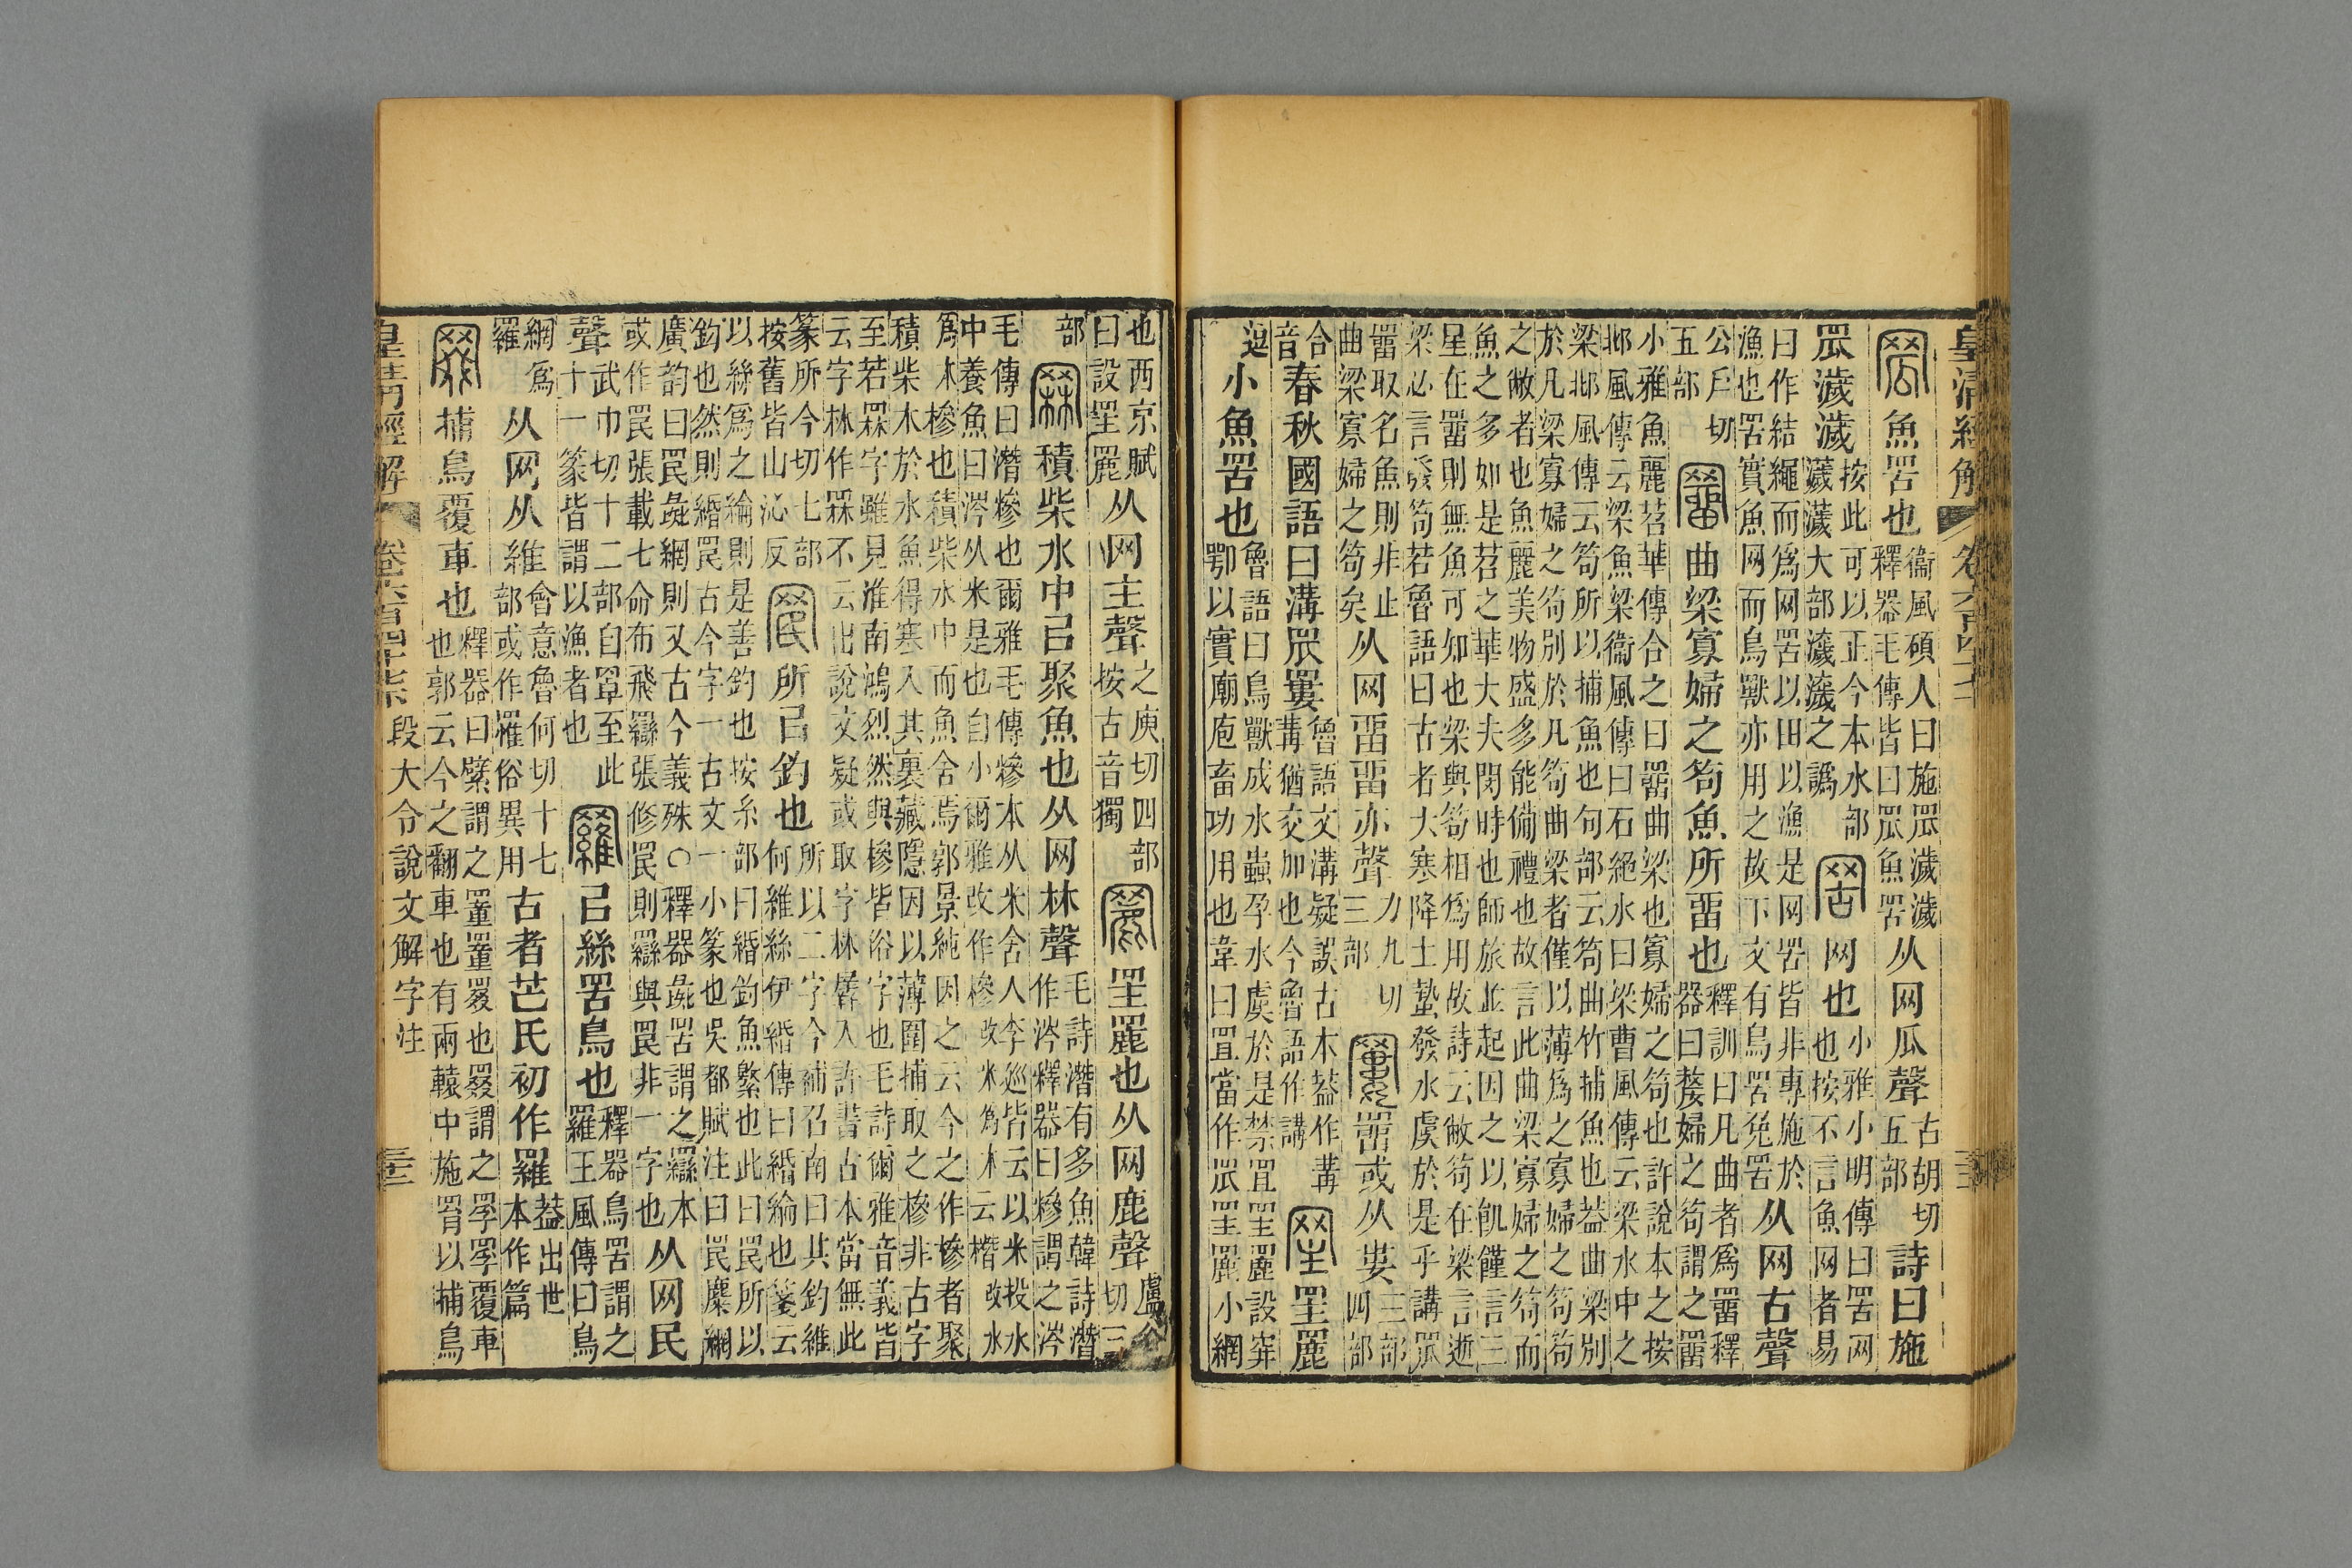 皇清經解 卷六百四十七
魚罟也
衞風碩人曰施罛濊濊
釋器毛傳皆曰罛魚罟
从网瓜聲
古胡切
五部
詩曰施
罛濊濊
按此可以正今本水部
濊濊大部濊濊之譌
网也
小雅小明傳曰罟网
也按不言魚网者易
曰作結繩而爲网罟以田以漁是网罟皆非專施於
漁也罟實魚网而鳥獸亦用之故下文有鳥罟兔罟
从网古聲
公戶切
五部
曲梁寡婦之笱魚所畱也
釋訓曰凡曲者爲罶釋
器曰嫠婦之笱謂之罶
小雅魚麗苕華傳合之曰罶曲梁也寡婦之笱也許說本之按
邶風傳云梁魚梁衞風傳曰石絕水曰梁曹風傳云梁水中之
梁邶風傳云笱所以捕魚也句部云笱曲竹捕魚也葢曲梁別
於凡梁寡婦之笱別於凡笱曲梁者僅以薄爲之寡婦之笱笱
之敝者也魚麗美物盛多能備禮也故言此曲梁寡婦之笱而
魚之多如是苕之華大夫閔時也師旅並起因之以飢饉言三
星在罶則無魚可知也梁與笱相爲用故詩云敝笱在梁言逝
梁必言發笱若魯語曰古者大寒降土蟄發水虞於是乎講罛
罶取名魚則非止
曲梁寡婦之笱矣
从网畱畱亦聲
力九切
三部
罶或从婁
三部
四部
合
音
春秋國語曰溝罛䍣
魯語文溝疑誤古本葢作冓
冓猶交加也今魯語作講
罜麗
逗
小魚罟也
魯語曰鳥獸成水蟲孕水虞於是禁罝罜䍡設穽
鄂以實廟庖畜功用也韋曰罝當作罛罜䍡小網
也西京賦
曰設罜䍡
从网主聲
之庾切四部
按古音獨
罜䍡也从网鹿聲
盧谷
切三
部
積柴水中㠯聚魚也从网林聲
毛詩潛有多魚韓詩潛
作涔釋器曰糝謂之涔
毛傳曰潛糝也爾雅毛傳糝本从米舍人李巡皆云以米投水
中養魚曰涔从米是也自小爾雅改作槮改米爲木云橬改水
爲木槮也積柴水中而魚舍焉郭景純因之云今之作槮者聚
積柴木於水魚得寒入其裏藏隱因以薄圍捕取之槮非古字
至若罧字雖見淮南鴻烈然與槮皆俗字也毛詩爾雅音義皆
云字林作罧不云出說文疑或取字林羼入許書古本當無此
篆所今切七部
按舊皆山沁反
所㠯釣也
所以二字今補召南曰其釣維
何維絲伊緡傳曰緡綸也箋云
以絲爲之綸則是善釣也按糸部曰緡釣魚繁也此曰罠所以
釣也然則緡罠古今字一古文一小篆也吳都賦注曰罠麋網
廣韵曰罠彘網則又古今義殊○釋器彘罟謂之羉本
或作罠張載七命布飛羉張修罠則羉與罠非一字也
从网民
聲
武巾切十二部自罩至此
十一篆皆謂以漁者也
㠯絲罟鳥也
釋器鳥罟謂之
羅王風傳曰鳥
網爲
羅
从网从維
會意魯何切十七
部或作罹俗異用
古者芒氏初作羅
葢出世
本作篇
捕鳥覆車也
釋器曰繴謂之罿罿罬也罬謂之罦罦覆車
也郭云今之翻車也有兩轅中施罥以捕鳥
皇清經解 卷六百四十七 段大令說文解字注